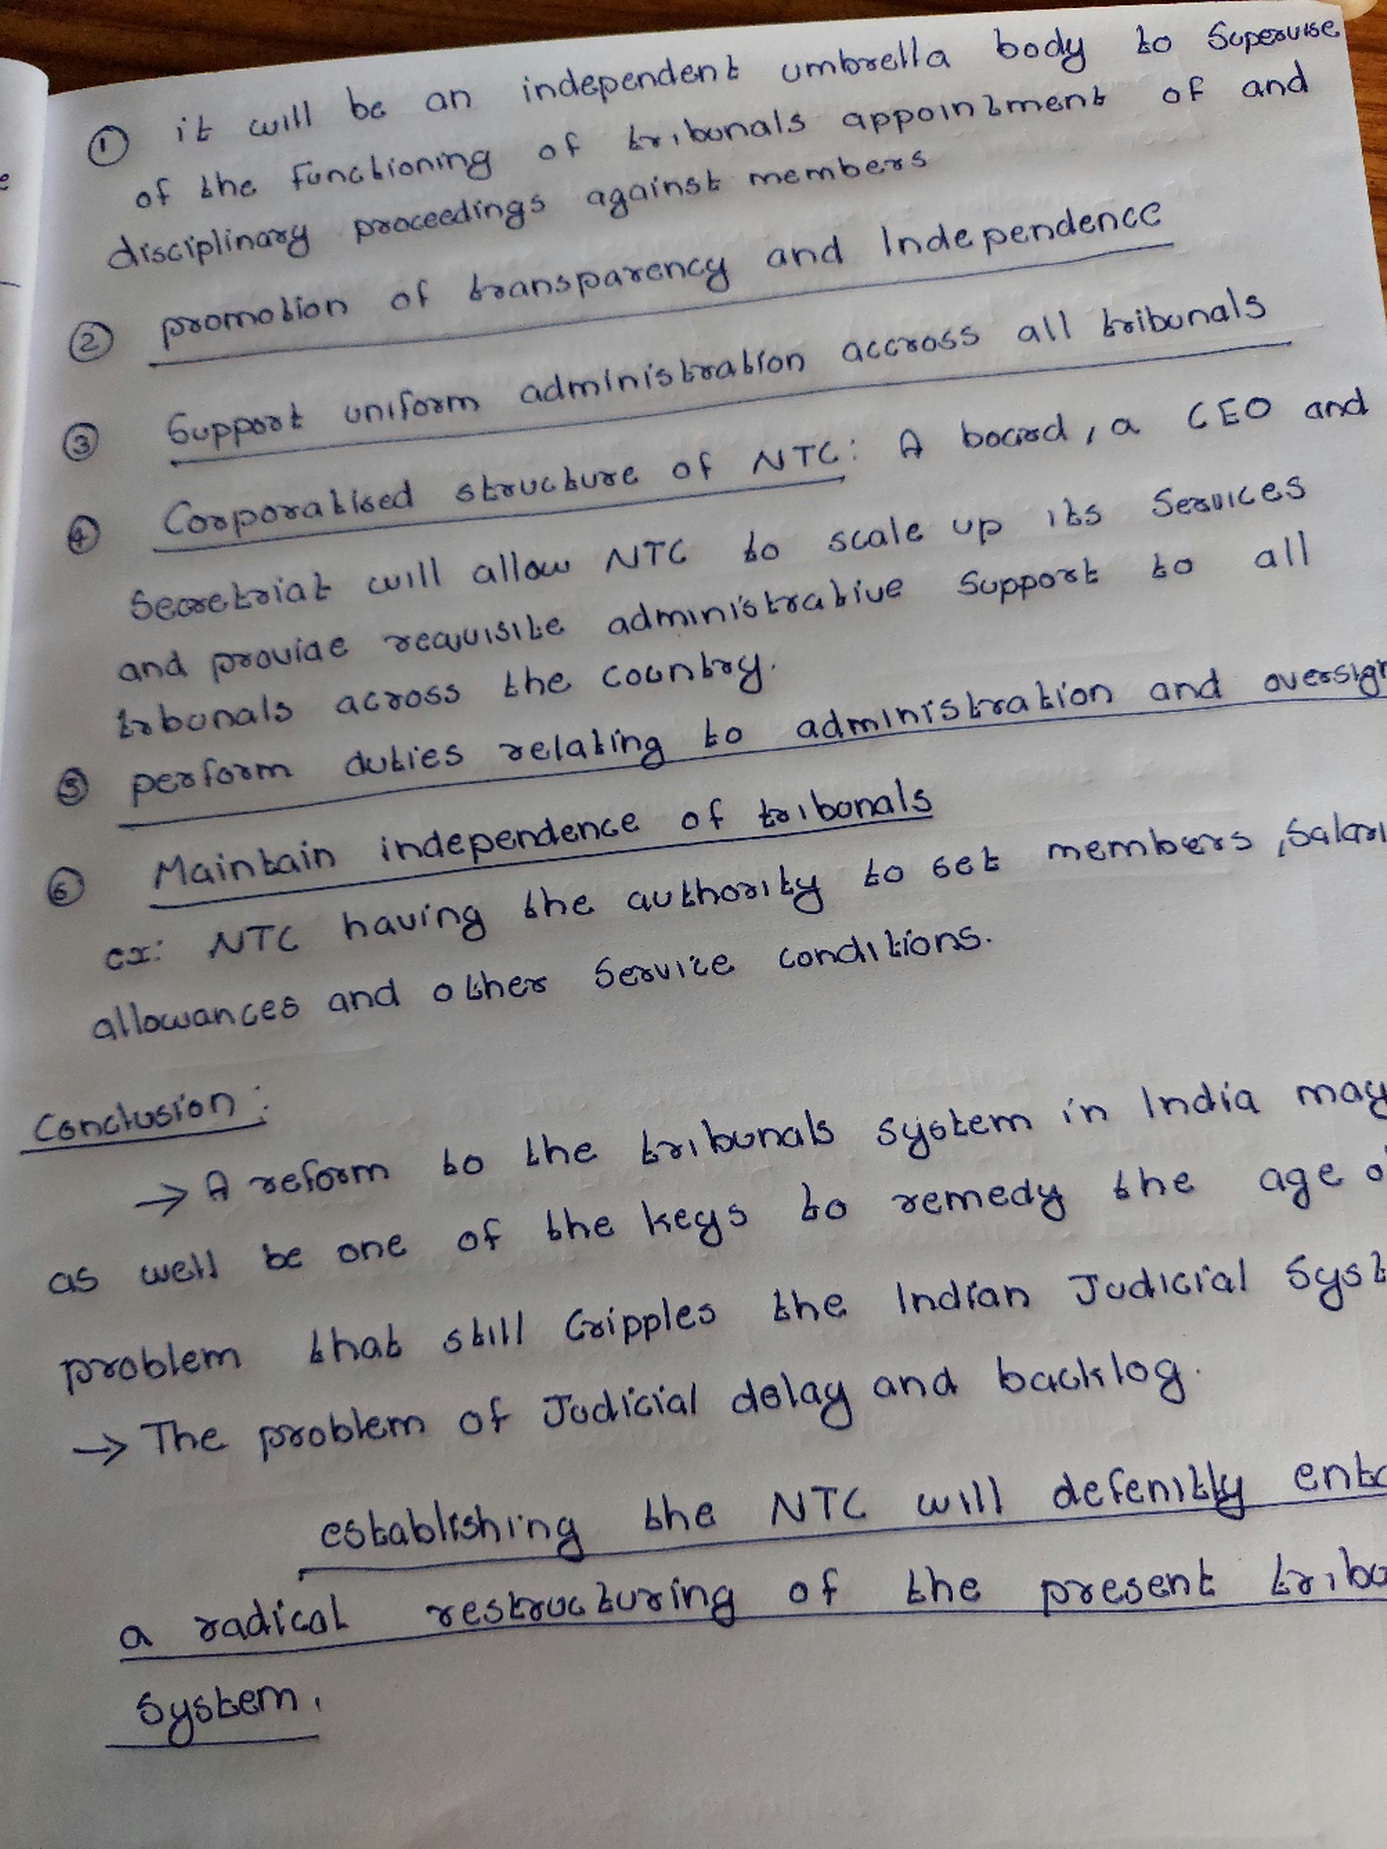 ① it will be an independent umbrella body to supervise
of the functioning of tribunals appointment of and
disciplinary proceedings against members
② promotion of transparency and Independence
③ Support uniform administration accross all tribunals
④ Corporatised structure of NTC: A board, a CEO and
Secretriat will allow NTC to scale up its Services
and provide requisite administrative support to all
tribunals across the country.
⑤ perform duties relating to administration and oversigh
⑥ Maintain independence of tribunals
ex: NTC having the authority to set members, salari
allowances and other service conditions.
Conclusion:
→ A reform to the tribunals system in India may
as well be one of the keys to remedy the age o
problem that still Cripples the Indian Judicial Syst
→ The problem of Judicial delay and backlog.
establishing the NTC will defenitly enta
a radical restructuring of the present tribu
System.